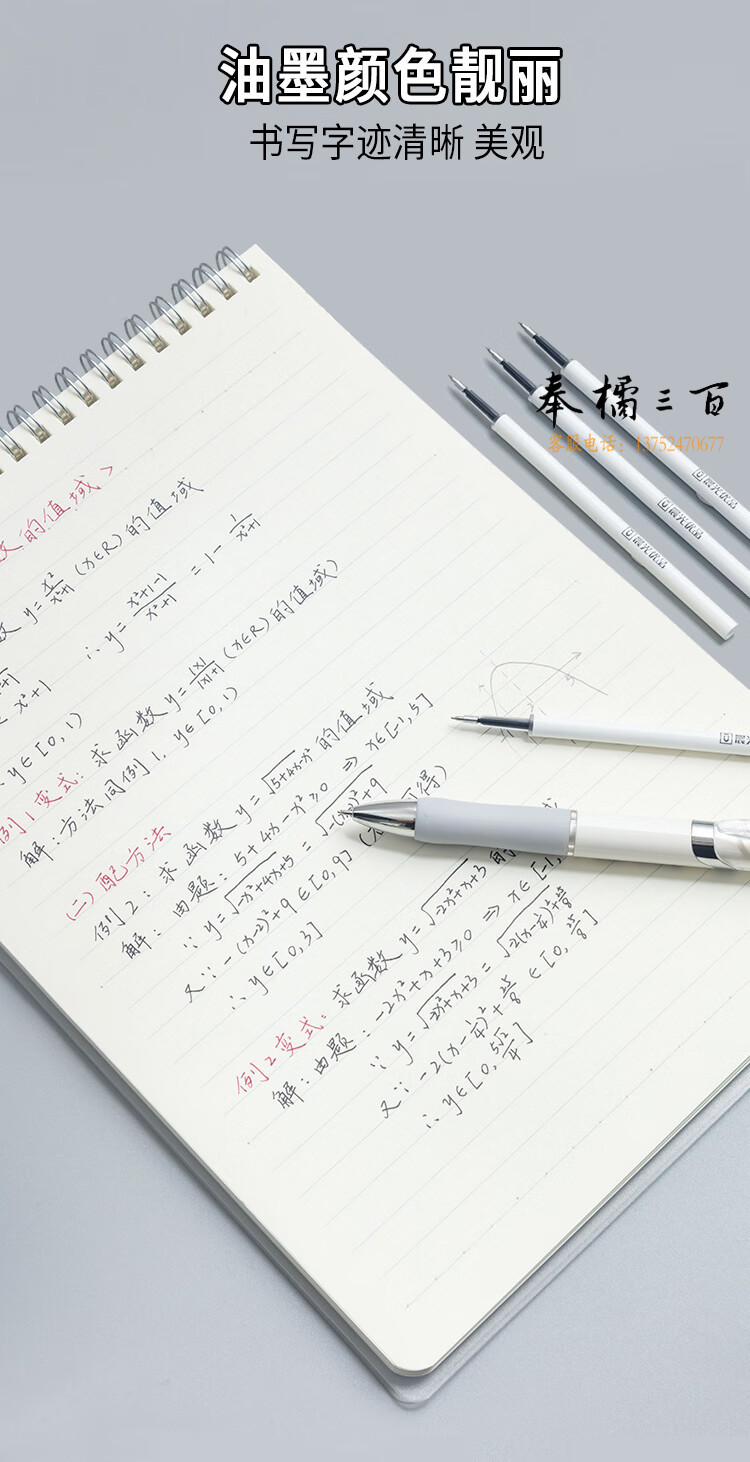 油墨颜色靓丽
书写字迹清晰 美观
奉橘三百
客服电话：13752470677
晨光优品
晨光优品
晨光优品
晨光优品
的值域>
数 y=x²/(x²+1) (x∈R) 的值域
∴ y=(x²+1-1)/(x²+1) = 1 - 1/(x²+1)
x²+1
y∈[0,1)
例1变式: 求函数 y=|x|/(|x|+1) (x∈R) 的值域)
解: 方法同例1. y∈[0,1)
(二) 配方法
例2: 求函数 y=√(5+4x-x²) 的值域
解: 由题: 5+4x-x²≥0 ⇒ x∈[-1,5]
∵ y=√(-x²+4x+5) = 
又∵ -(x-2)²+9∈[0,9] 得)
∴ y∈[0,3]
例2变式: 求函数 y=√(-2x²+x+3) 的
解: 由题: -2x²+x+3≥0 ⇒ x∈[-1,
∵ y=√(-2x²+x+3) = √(-2(x-1/4)²+25/8)
又∵ -2(x-1/4)²+25/8 ∈[0, 25/8]
∴ y∈[0, 5√2/4]